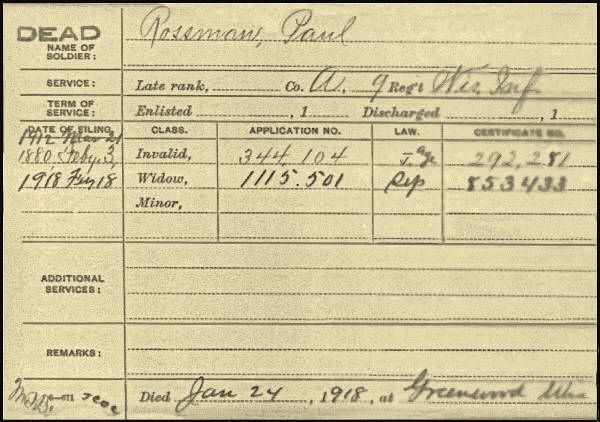 DEAD
NAME OF SOLDIER: Rossman, Paul
SERVICE: Late rank, Co. A, 9 Reg't Wis. Inf.
TERM OF SERVICE: Enlisted , 1 Discharged , 1
DATE OF FILING. CLASS. APPLICATION NO. LAW. CERTIFICATE NO.
1912 Mar 21
1880, Feby. 3, Invalid, 344,104 age 292,281
1918 18 Widow, 1115.501 Sep 853433
Minor,
ADDITIONAL SERVICES:
REMARKS:
Died Jan 24, 1918, at Greenwood Wis